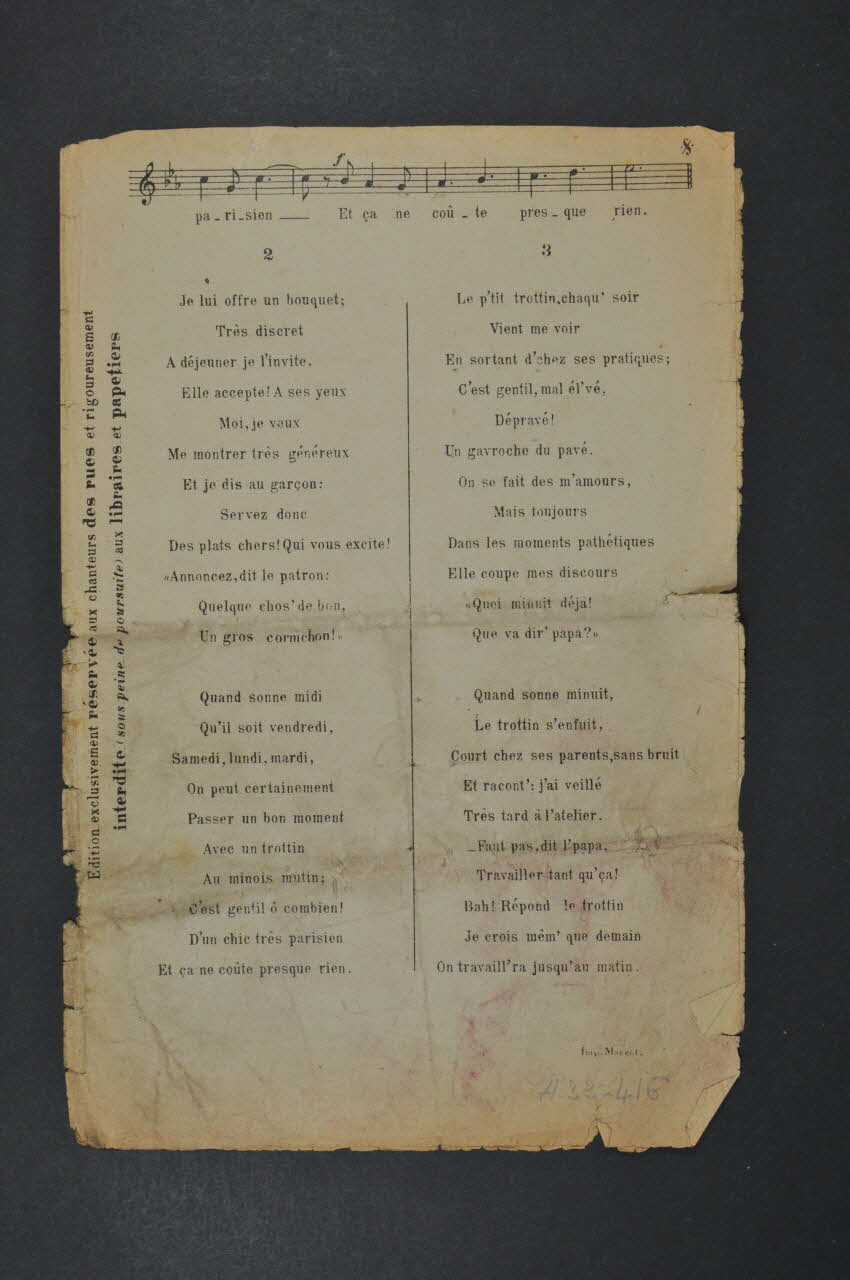 pa_ri_sien ___ Et ça ne coû_te pres_que rien.
2
Je lui offre un bouquet;
Très discret
A déjeuner je l'invite.
Elle accepte! A ses yeux
Moi, je veux
Me montrer très généreux
Et je dis au garçon:
Servez donc
Des plats chers! Qui vous excite!
«Annoncez, dit le patron:
Quelque chos' de bon,
Un gros cornichon!»
Quand sonne midi
Qu'il soit vendredi,
Samedi, lundi, mardi,
On peut certainement
Passer un bon moment
Avec un trottin
Au minois mutin;
C'est gentil ô combien!
D'un chic très parisien
Et ça ne coûte presque rien.
3
Le p'tit trottin, chaqu' soir
Vient me voir
En sortant d'chez ses pratiques;
C'est gentil, mal él'vé,
Dépravé!
Un gavroche du pavé.
On se fait des m'amours,
Mais toujours
Dans les moments pathétiques
Elle coupe mes discours
«Quoi minuit déjà!
Que va dir' papa?»
Quand sonne minuit,
Le trottin s'enfuit,
Court chez ses parents, sans bruit
Et racont': j'ai veillé
Très tard à l'atelier.
_Faut pas, dit l'papa,
Travailler tant qu'ça!
Bah! Répond le trottin
Je crois mêm' que demain
On travaill'ra jusqu'au matin.
Edition exclusivement réservée aux chanteurs des rues et rigoureusement
interdite (sous peine de poursuite) aux libraires et papetiers
Imp.